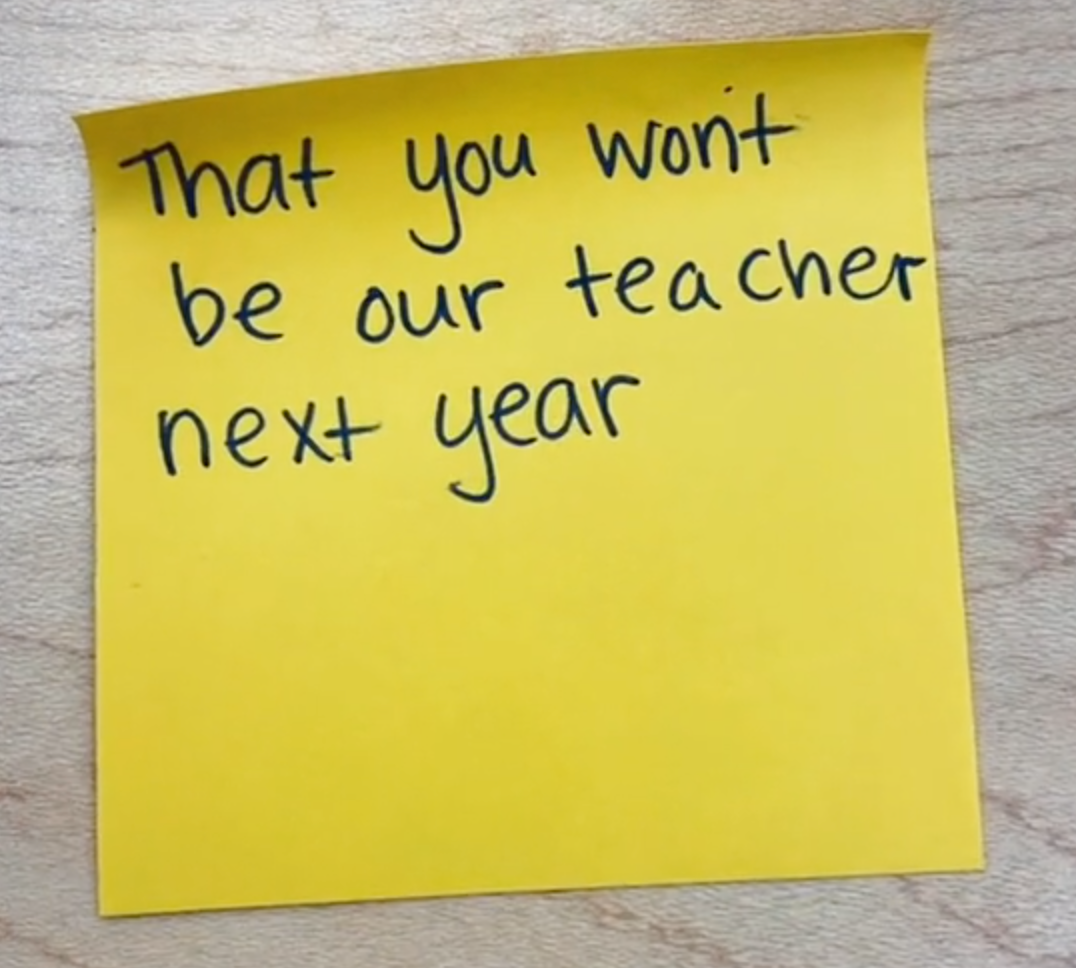 That you won't
be our teacher
next year